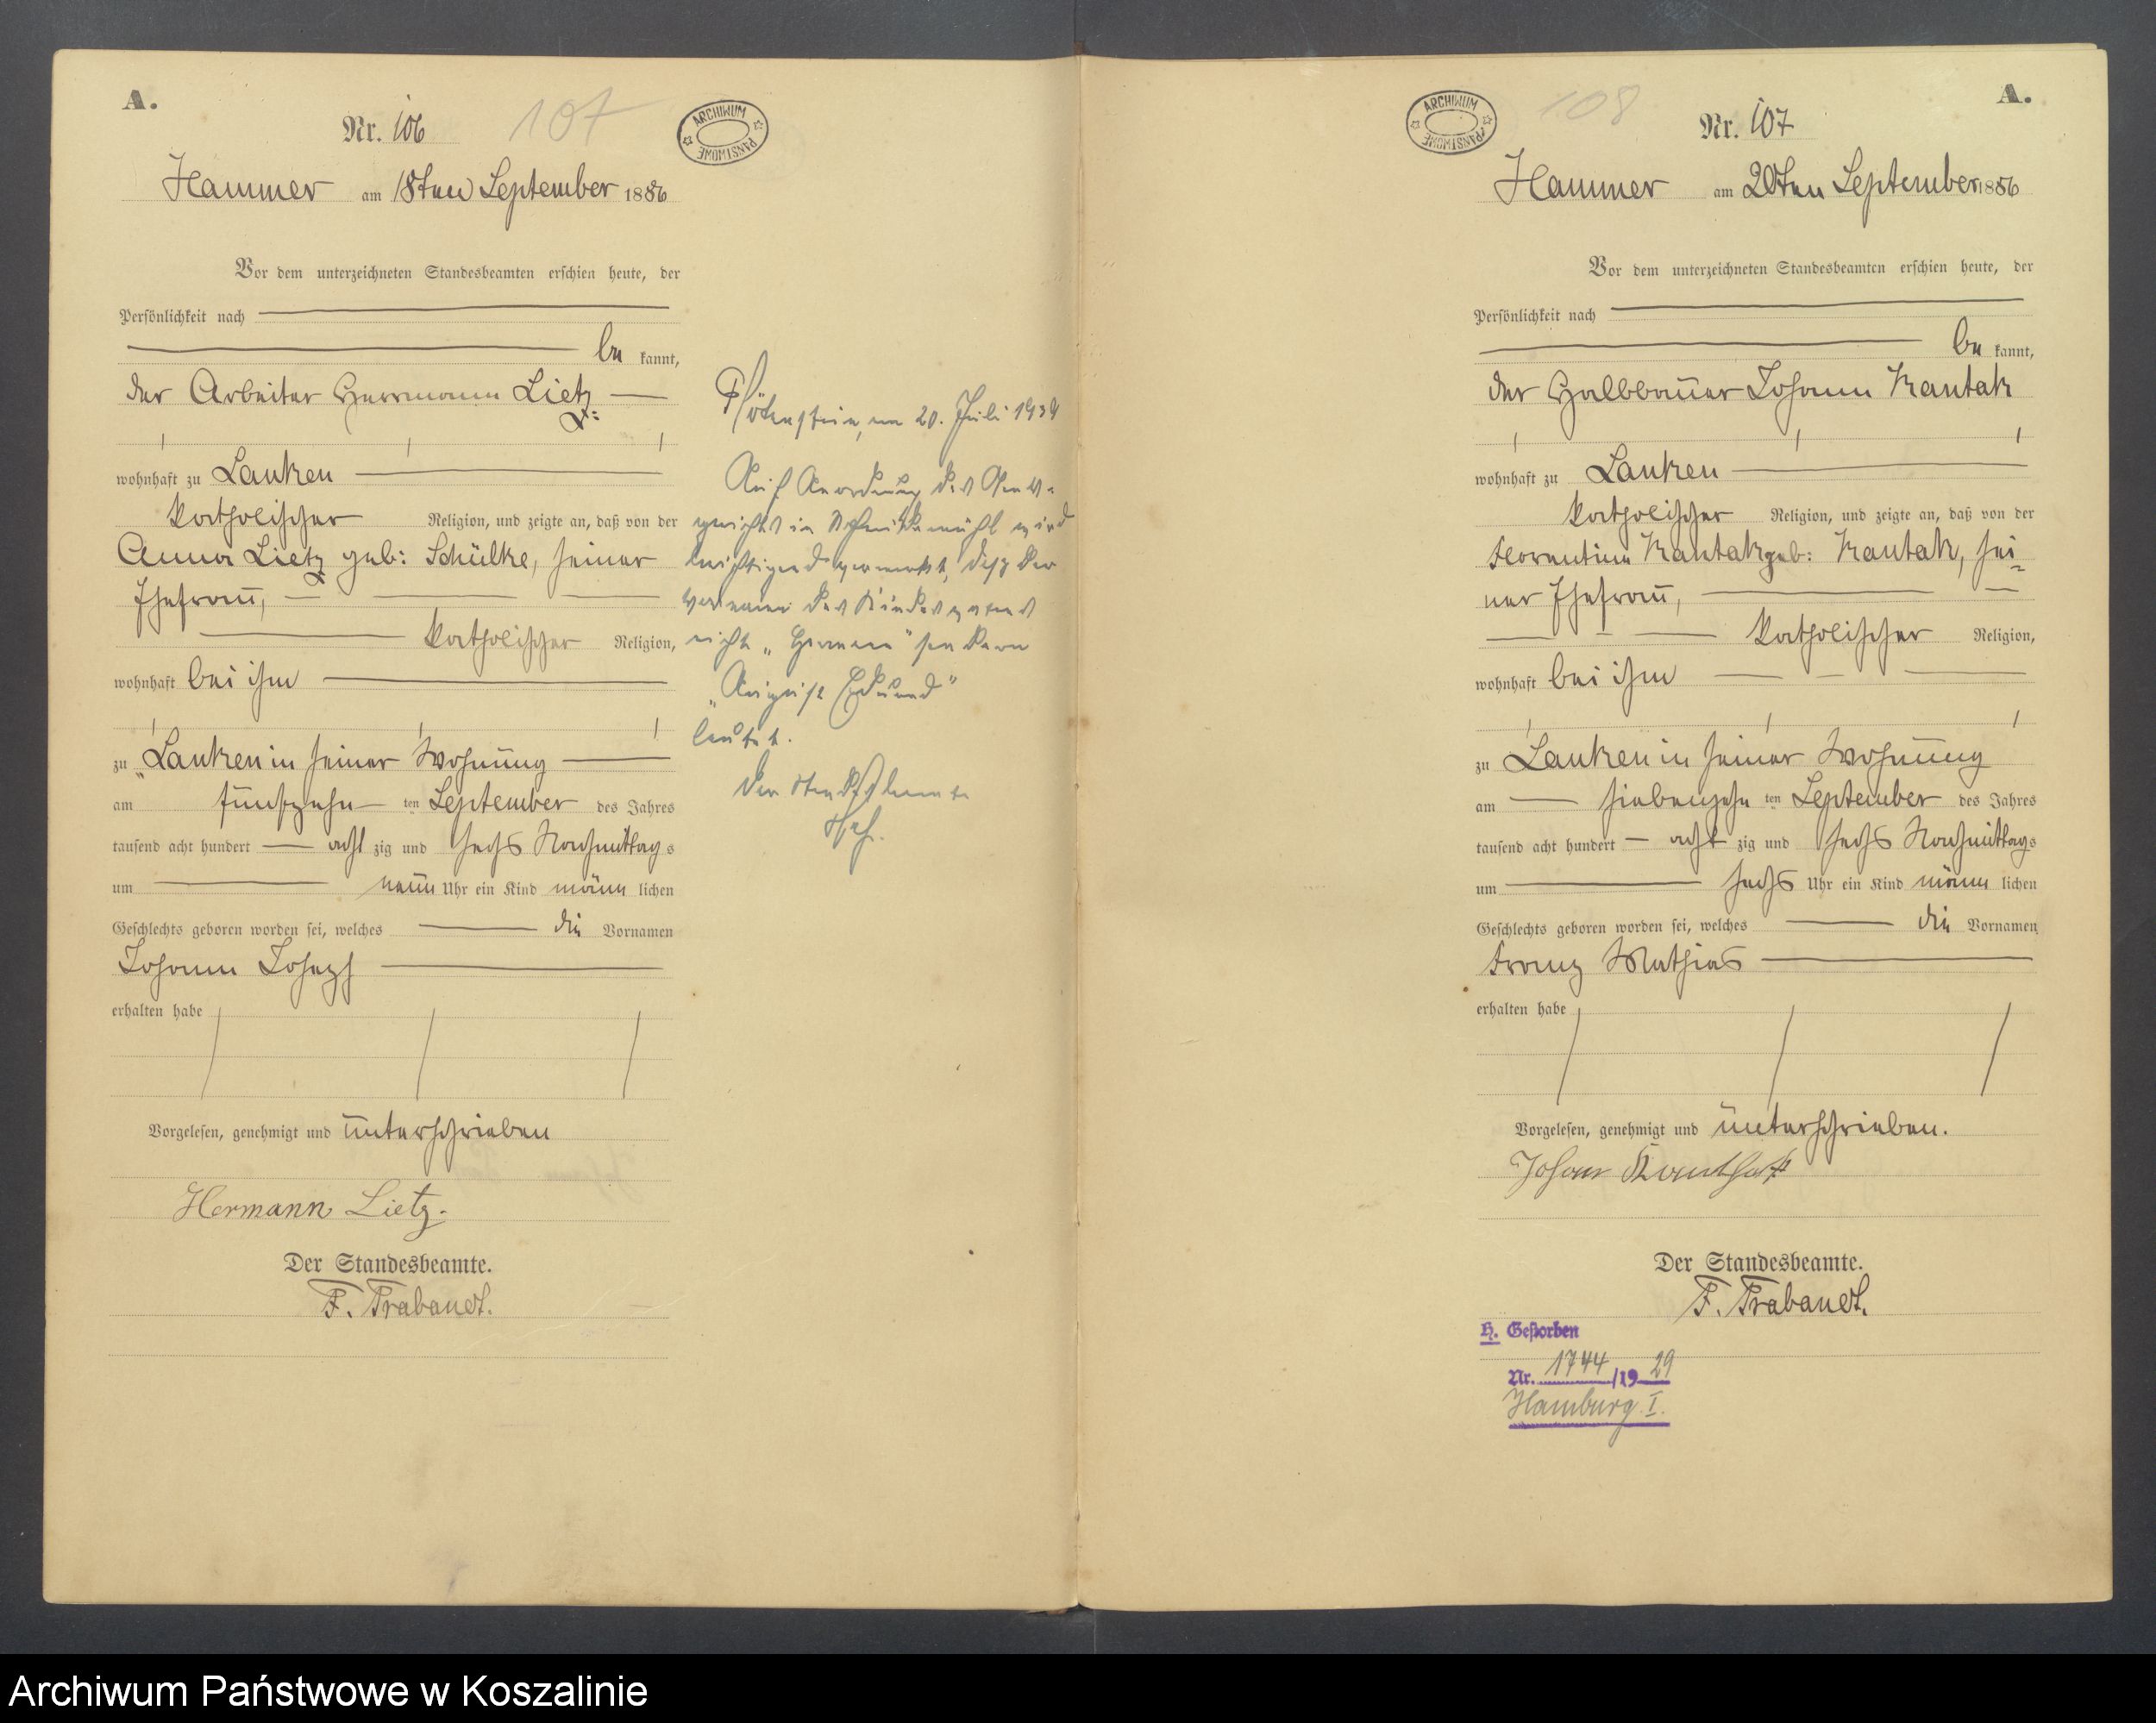 A.
Nr. 106
107
ARCHIWUM PAŃSTWOWE
Hammer am 18ten September 1886
Vor dem unterzeichneten Standesbeamten erschien heute, der
Persönlichkeit nach
be kannt,
der Arbeiter Herrmann Lietz
wohnhaft zu Lanken
katholischer Religion, und zeigte an, daß von der
Anna Lietz geb: Schülke, seiner
Ehefrau,
katholischer Religion,
wohnhaft bei ihm
zu Lanken in seiner Wohnung
am fünfzehn ten September des Jahres
tausend acht hundert acht zig und sechs Nachmittag s
um neun Uhr ein Kind männ lichen
Geschlechts geboren worden sei, welches die Vornamen
Johann Joseph
erhalten habe
Vorgelesen, genehmigt und unterschrieben
Hermann Lietz.
Der Standesbeamte.
F. Trabandt.
Flötenstein, am 20. Juli 1939
Auf Anordnung des Amts-
gerichts in Schneidemühl wird
berichtigend vermerkt, daß der
Vorname des Kindes
nicht „ " sondern
„August Eduard"
lautet.
Der Standesbeamte
A.
108
Nr. 107
ARCHIWUM PAŃSTWOWE
Hammer am 20ten September 1886
Vor dem unterzeichneten Standesbeamten erschien heute, der
Persönlichkeit nach
be kannt,
der Halbbauer Johann Kantak
wohnhaft zu Lanken
katholischer Religion, und zeigte an, daß von der
Florentine Kantak geb: Kantak, sei=
ner Ehefrau,
katholischer Religion,
wohnhaft bei ihm
zu Lanken in seiner Wohnung
am siebenzehn ten September des Jahres
tausend acht hundert acht zig und sechs Nachmittags
um sechs Uhr ein Kind männ lichen
Geschlechts geboren worden sei, welches die Vornamen
Franz Mathias
erhalten habe
Vorgelesen, genehmigt und unterschrieben.
Johan Kanthak
Der Standesbeamte.
F. Trabandt.
H. Gestorben
Nr. 1744 /19 29
Hamburg I.
Archiwum Państwowe w Koszalinie